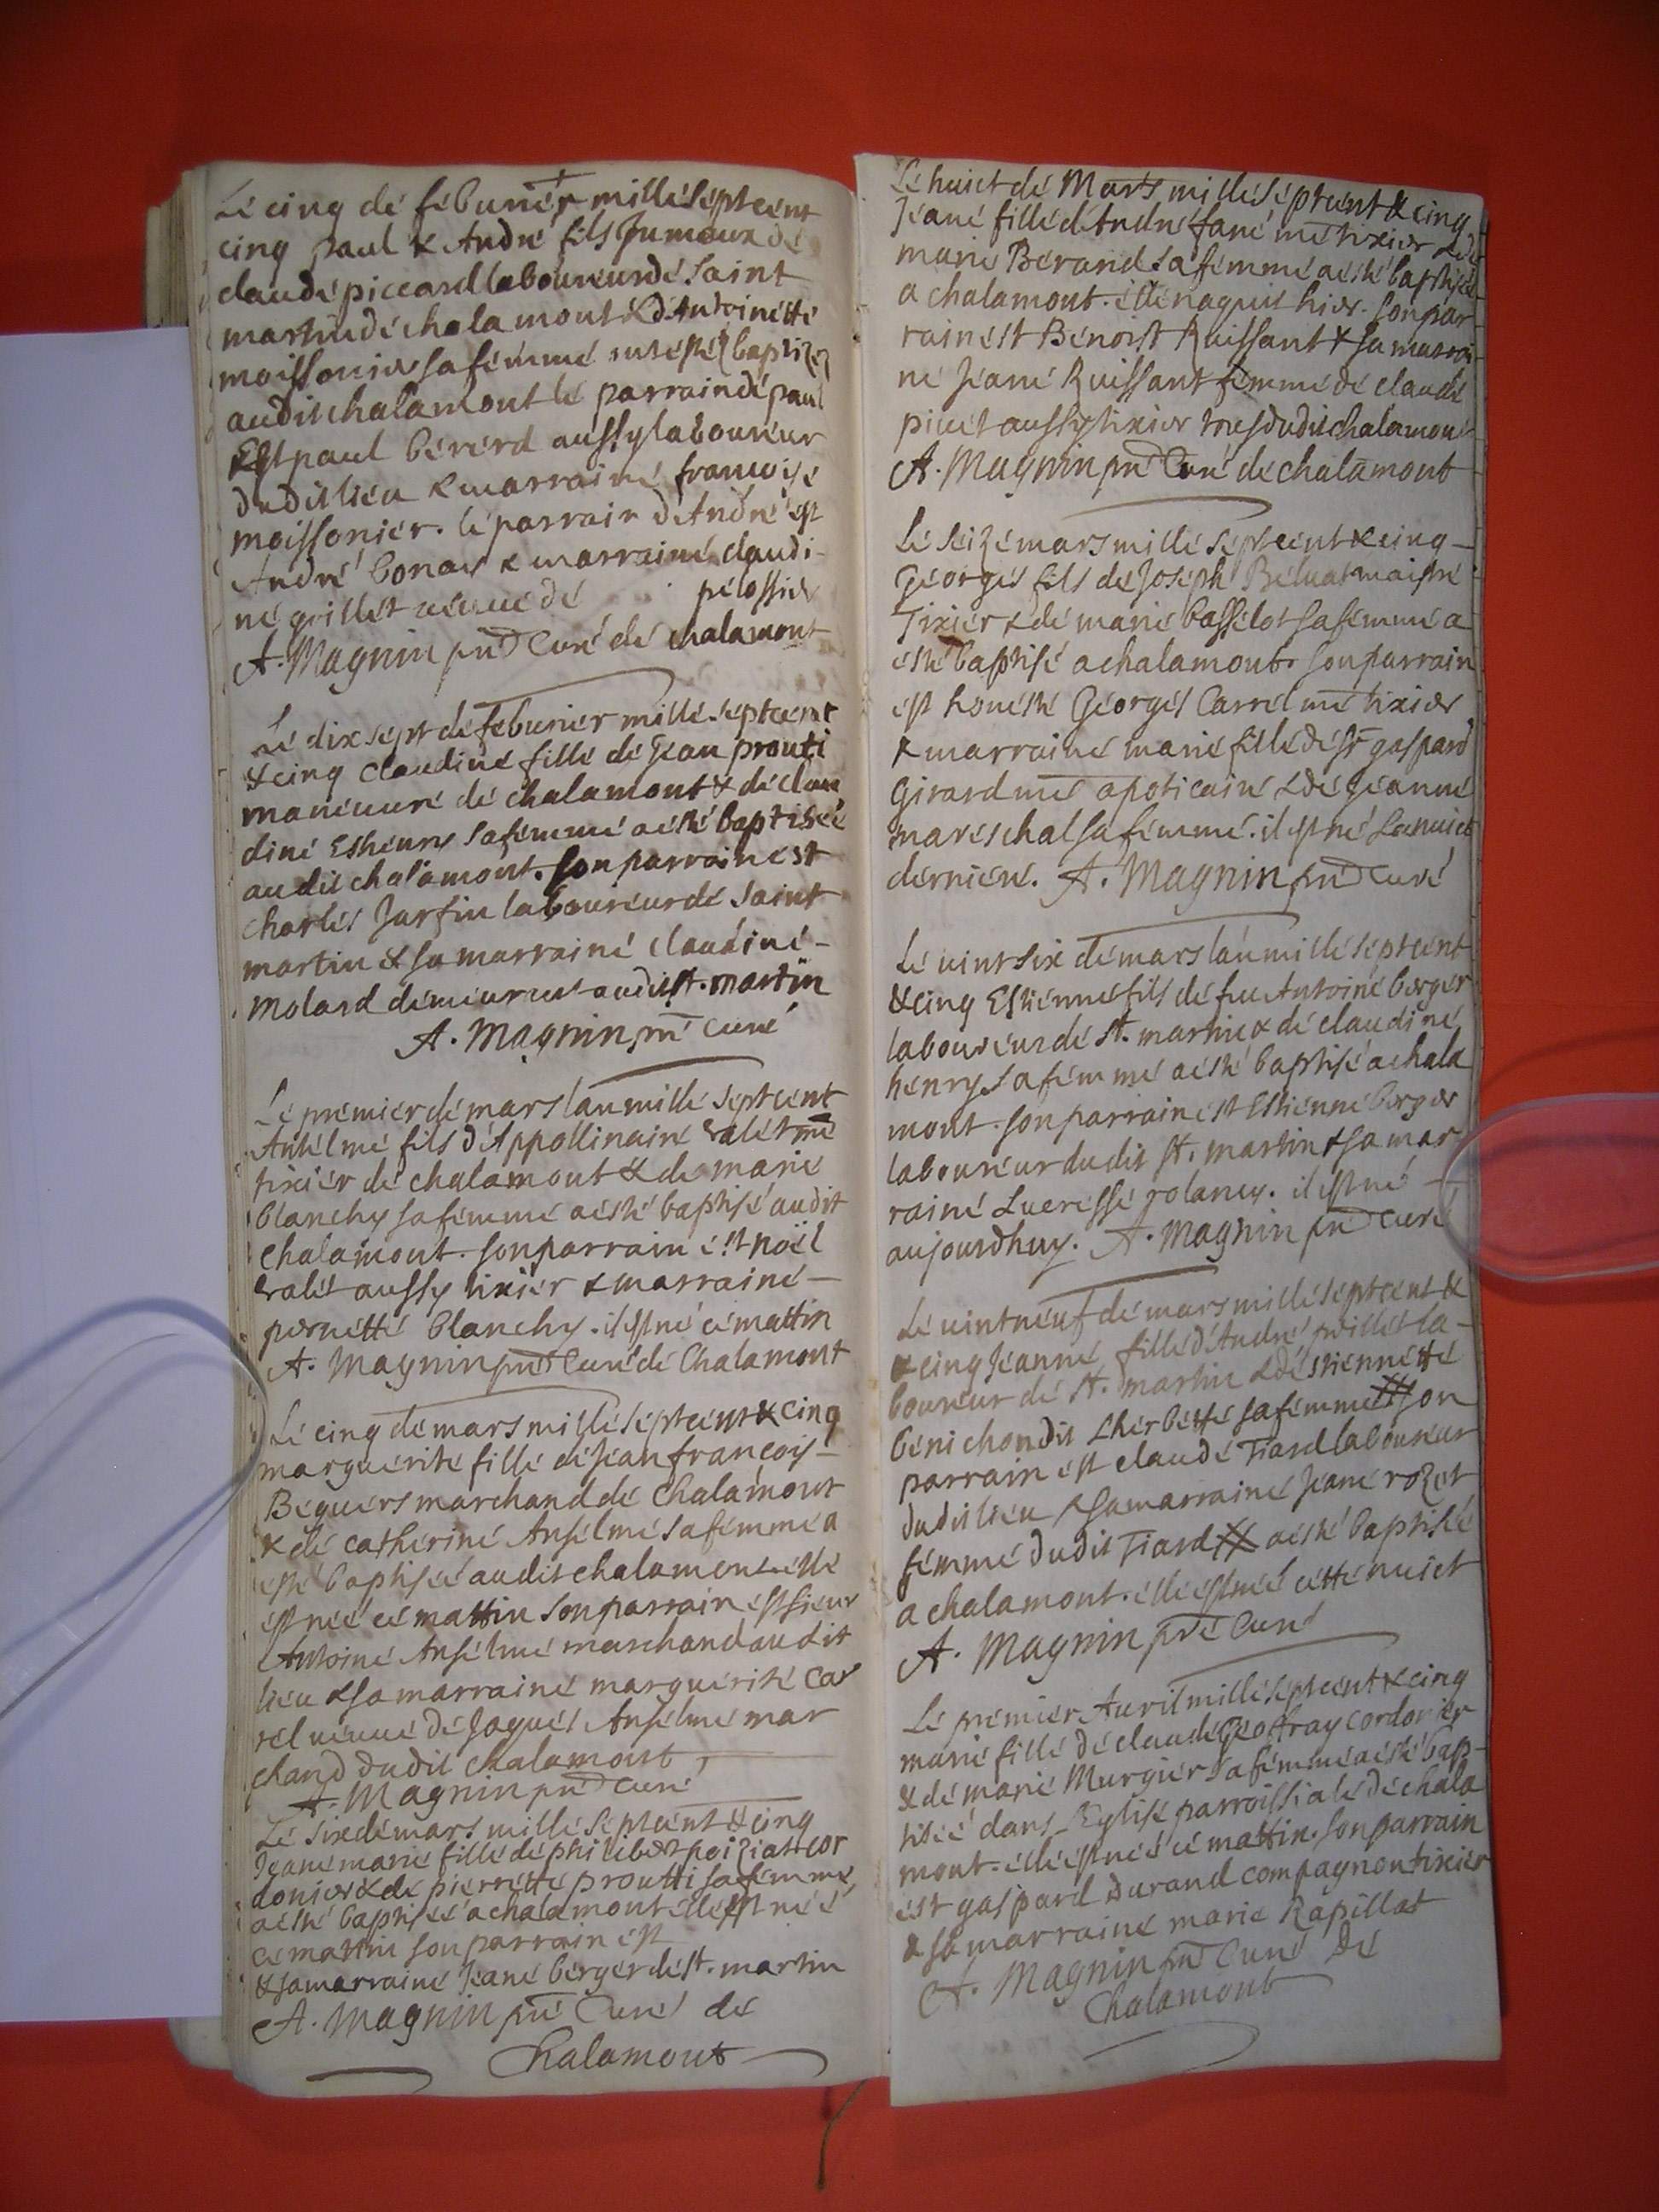 Le cinq de feburier mille septcent
cinq paul & André fils Jumeaux de
claude piccard laboureur de saint
martin de chalamont & d'Antoinette
moissonier sa femme ont estés baptizez
audit chalamont le parrain de paul
Est paul bererd aussy laboureur
dudit lieu & marraine francoise
moissonier. le parrain d'André est
André bonar & marraine claudi-
ne grillet veuve de pelossier
A. Magnin pre Curé de chalamont
Le dix sept de feburier mille septcent
& cinq Claudine fille de Jean prouti
maneuvre de chalamont & de clau
dine Esheury sa femme a esté baptisée
audit chalamont. son parrain est
charles Jarfin laboureur de saint
martin & sa marraine claudine-
Molard demeurant audit st. martin
A. Magnin pre curé
Le premier de mars l'an mille septcent
Anselme fils d'Appollinaire valet me
tixier de chalamont & de marie
blanchy sa femme a esté baptisé audit
chalamont. son parrain est noël
valet aussy tixier & marraine-
pernette blanchy. il est né ce mattin
A. Magnin pre Curé de Chalamont
Le cinq de mars mille septcent & cinq
marguerite fille de Jean francois-
Beguers marchand de Chalamont
& de catherine Anselme sa femme a
esté baptisée audit chalamont. elle
est née ce mattin son parrain est sieur
Antoine Anselme marchand audit
lieu & sa marraine marguerite Car
rel veuve de Jaques Anselme mar
chand dudit chalamont
A. Magnin pre curé
Le six de mars mille septcent & cinq
Jeane marie fille de philibert poiziat cor
donier & de pierrette proutti sa femme
a esté baptisée a chalamont elle est née
ce mattin son parrain est
& sa marraine Jeane berger de st. martin
A. Magnin pre Curé de
Chalamont
Le huict de Mars mille septcent & cinq
Jeane fille d'André fané me tixier & de
marie Berand sa femme a esté baptisée
a chalamont. elle naquit hier. son par-
rain est Benoist Ruissant & sa marrai-
ne Jeane Ruissant femme de claude
picet aussy tixier tous dudit chalamont
A. Magnin pre Curé de chalamont
Le seize mars mille septcent & cinq-
Georges fils de Joseph Beluat maistre
Tixier & de marie basselot sa femme a
esté baptisé a chalamont. son parrain
est honeste Georges Carrel me tixier
& marraine marie fille de Sr gaspard
Girard me apoticaire & de Jeanne
mareschal sa femme. il est né la nuict
derniere. A. Magnin pre curé
Le vint six de mars l'an mille septcent
& cinq Estienne fils de feu Antoine berger
laboureur de st. martin & de claudine
henry sa femme a esté baptisé a chala
mont. son parrain est Estienne berger
laboureur dudit st. martin & sa mar
raine Lucresse rolancy. il est né
aujourdhuy. A. Magnin pre curé
Le vint neuf de mars mille septcent &
& cinq Jeanne fille d'André grillet la-
boureur de st. martin & d'estiennette
benichon dit Lherbette sa femme son
parrain est claude Tiard laboureur
dudit lieu & sa marraine Jeane rozet
femme dudit Tiard a esté baptisée
a chalamont. elle est née cette nuict
A. Magnin pre Curé
Le premier Auril mille septcent & cinq
marie fille de claude Geoffray cordonier
& de marie Murgier sa femme a esté bap-
tisée dans l'Eglise parroissiale de chala
mont. elle est née ce mattin. son parrain
est gaspard durand compagnon tixier
& sa marraine marie Rapillat
A. Magnin pre Curé de
Chalamont